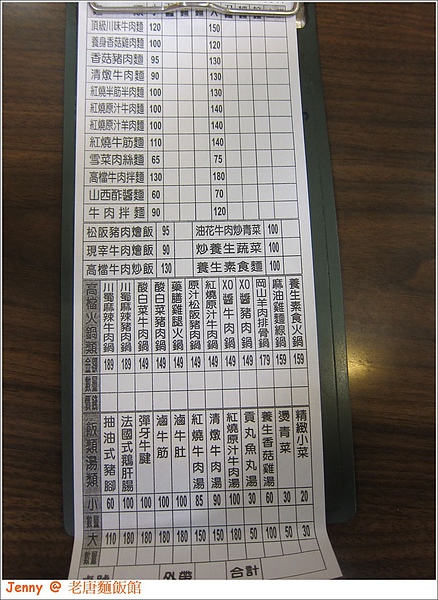 頂級川味牛肉麵 120 150
養身香菇雞肉麵 100 120
香菇豬肉麵 95 130
清燉牛肉麵 90 130
紅燒半筋半肉麵 100 130
紅燒原汁牛肉麵 100 140
紅燒原汁羊肉麵 100 140
紅燒牛筋麵 110 140
雪菜肉絲麵 65 75
高檔牛肉拌麵 130 180
山西酢醬麵 60 70
牛肉拌麵 90 120
松阪豬肉燴飯 95 油花牛肉炒青菜 100
現宰牛肉燴飯 90 炒養生蔬菜 100
高檔牛肉炒飯 130 養生素食麵 100
高檔火鍋類 川蜀麻辣牛肉鍋 川蜀麻辣豬肉鍋 酸白菜牛肉鍋 酸白菜豬肉鍋 藥膳雞腿火鍋 原汁松阪豬肉鍋 紅燒原汁牛肉鍋 XO醬牛肉鍋 XO醬豬肉鍋 岡山羊肉排骨鍋 麻油雞麵線鍋 養生素食火鍋
金額 189 189 149 149 149 149 149 149 149 159 179 159
數量
價錢
飯類湯類 抽油式豬腳 法國式鵝肝腸 彈牙牛腱 滷牛筋 滷牛肚 紅燒牛肉湯 清燉牛肉湯 紅燒原汁牛肉湯 貢丸魚丸湯 養生香菇雞湯 燙青菜 精緻小菜
小 60 100 100 100 100 85 90 100 30 60 30 20
數量
大 110 180 180 180 180 150 150 180 50 100 50 30
數量
外帶 合計
Jenny @ 老唐麵飯館